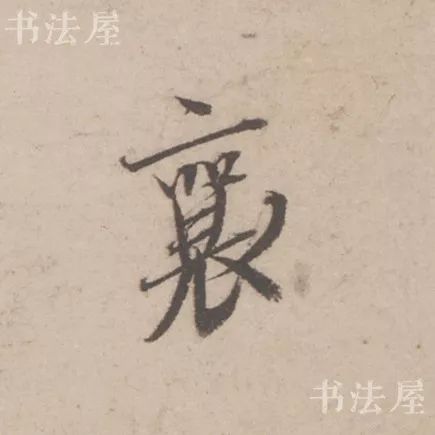 书法屋
襄
书法屋